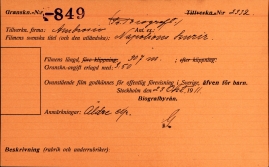 Gransk.-N:r -849 Tillverkn.-N:r 3332
Tillverkn. firma: Ambrosio
Filmens svenska titel (och den utländska):
Filmens längd, före klippning: 307 m. efter klippning:
Granskn.-avgift erlagd med
Ovanstående film godkännes för offentlig förevisning i Sverige, äfven för barn.
Stockholm den 28 Okt. 1911.
Biografbyrån.
Anmärkningar:
Beskrivning (rubrik och underrubriker):